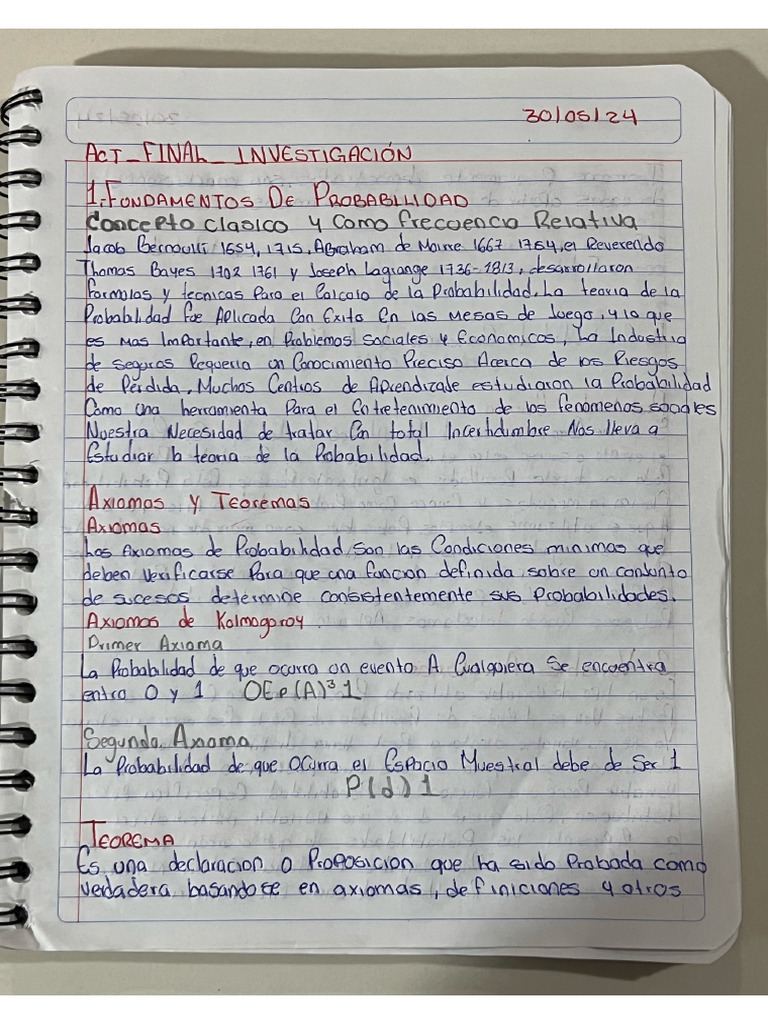 30/05/24
ACT_FINAL_INVESTIGACIÓN
1.FUNDAMENTOS DE PROBABILIDAD
Concepto clasico y Como frecuencia Relativa
Jacob Bernoulli 1654, 1715, Abraham de Moivre 1667 1754, el Reverendo
Thomas Bayes 1702 1761 y Joseph Lagrange 1736-1813, desarrollaron
formulas y tecnicas Para el Calculo de la Probabilidad. La teoria de la
Probabilidad fue Aplicada Con Exito en las mesas de Juego, y lo que
es mas Importante, en Problemas Sociales y Economicos, La Industria
de seguros Requeria un Conocimiento Preciso Acerca de los Riesgos
de Pérdida, Muchos Centros de Aprendizale estudiaron la Probabilidad
Como una herramienta Para el Entretenimiento de los fenómenos sociales
Nuestra Necesidad de tratar Con total Incertidimbre Nos lleva a
Estudiar la teoria de la Probabilidad.
Axiomas y Teoremas
Axiomas
Los Axiomas de Probabilidad Son las Condiciones minimas que
deben verificarse Para que una funcion definida sobre un conjunto
de sucesos determine consistentemente sus Probabilidades.
Axiomas de Kolmogorov
Primer Axioma
La Probabilidad de que ocurra un evento A Cualquiera Se encuentra
entra 0 y 1 OEp(A)³1
Segundo Axioma
La Probabilidad de que Ocurra el Espacio Muestral debe de Ser 1
P(d)1
TEOREMA
Es una declaracion o Proposicion que ha sido Probada como
verdadera basandose en axiomas, definiciones y otros